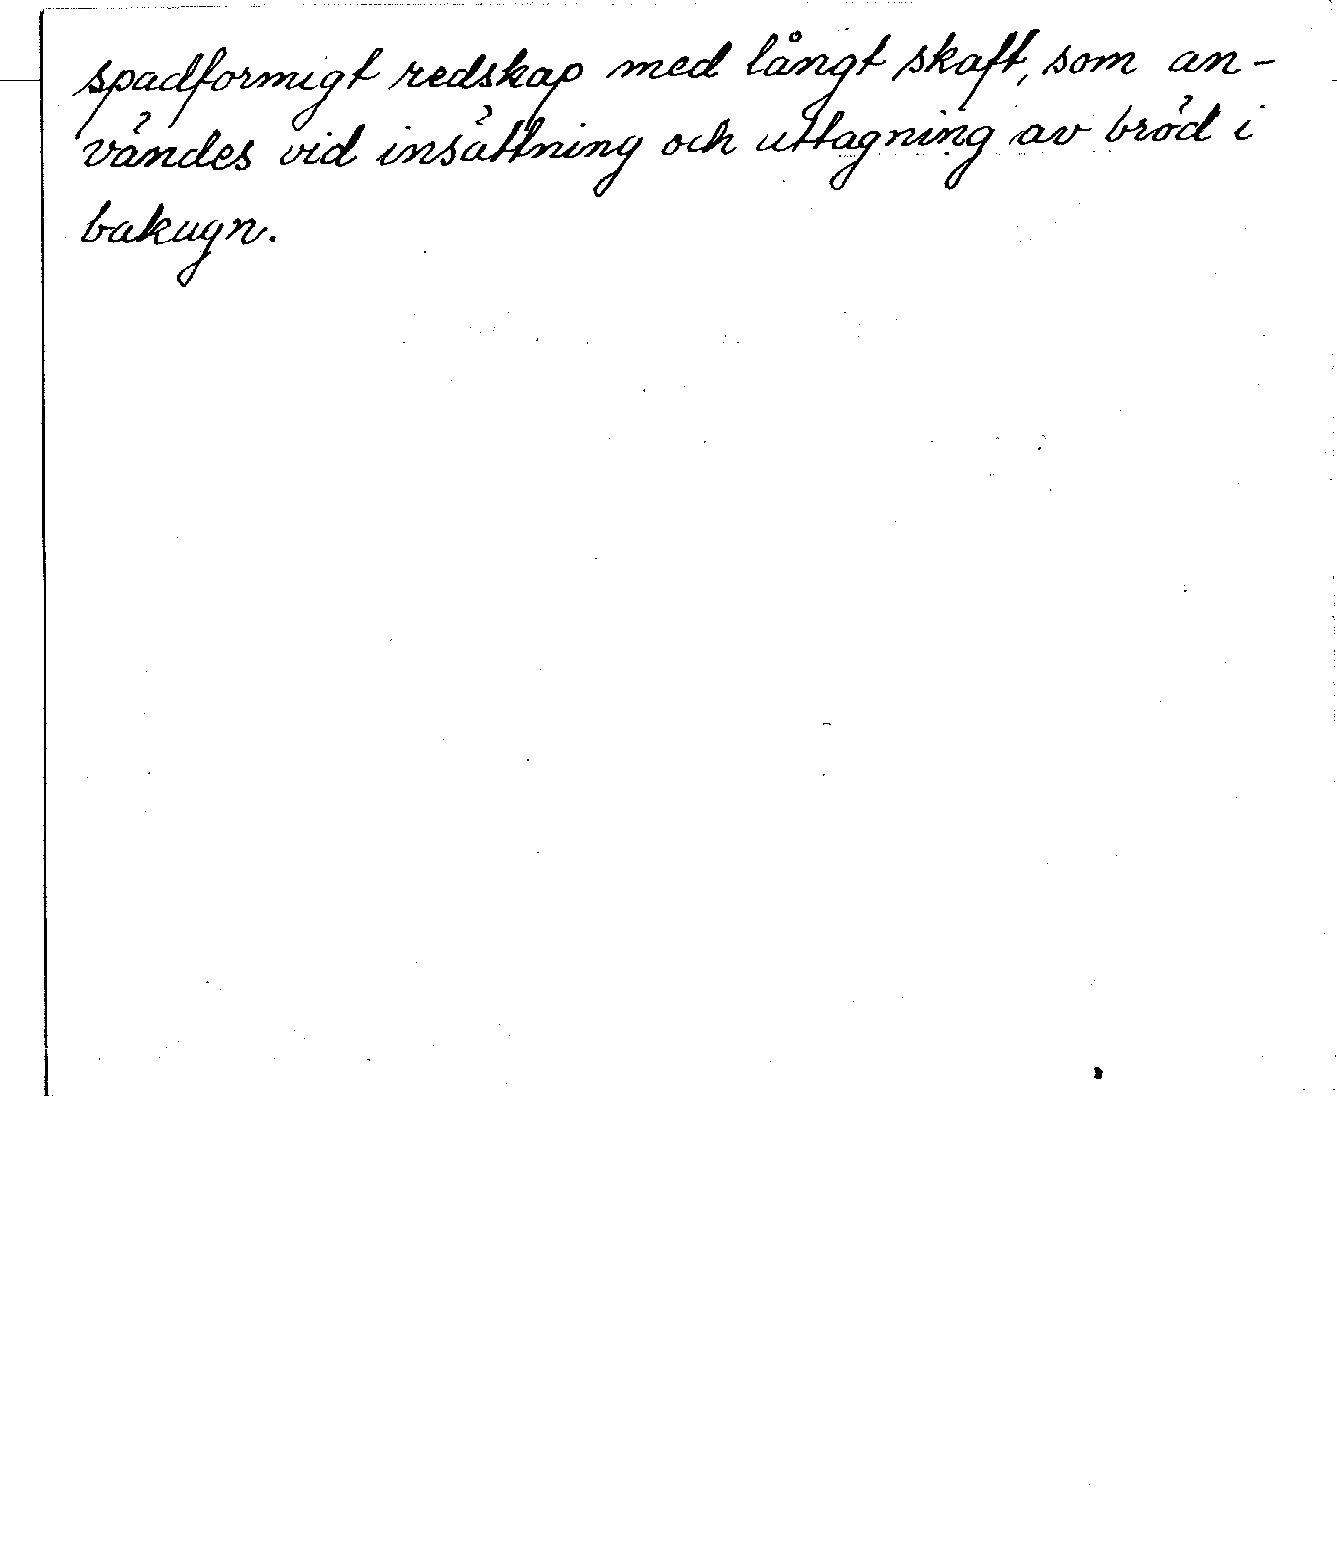 spadformigt redskap med långt skaft, som an-
vändes vid insättning och uttagning av bröd i
bakugn.